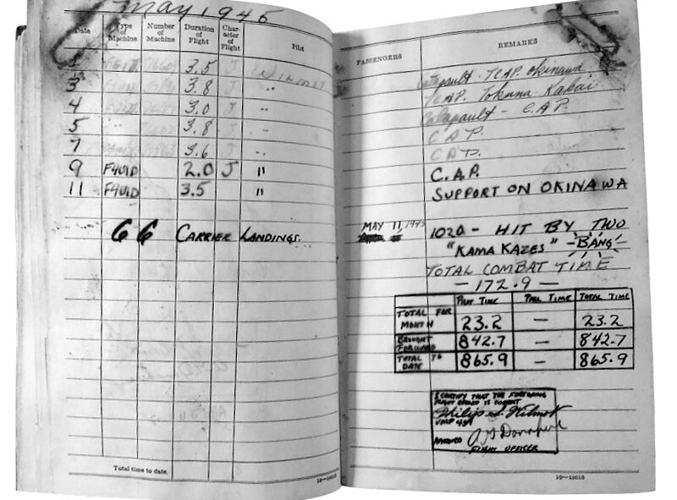 May 1945
Date Type of Machine Number of Machine Duration of Flight Character of Flight Pilot
3.5 J Wilmot
3 3.8 J "
4 3.0 J "
5 " 3.8 "
7 3.6 J "
9 F4U1D 2.0 J "
11 F4U1D 3.5 "
66 CARRIER LANDINGS.
Total time to date.
PASSENGERS REMARKS
Catapault - TCAP. Okinawa
TCAP.
Catapault - C.A.P.
C A P.
C A P.
C.A.P.
SUPPORT ON OKINAWA
MAY 11, 1945 1020 - HIT BY TWO
"KAMA KAZES" -BANG-
TOTAL COMBAT TIME
- 172.9 -
PILOT TIME PASS. TIME TOTAL TIME
TOTAL FOR MONTH 23.2 — 23.2
BROUGHT FORWARD 842.7 — 842.7
TOTAL TO DATE 865.9 — 865.9
I CERTIFY THAT THE FOREGOING
FLIGHT RECORD IS CORRECT
Philip S. Wilmot
APPROVED
FLIGHT OFFICER